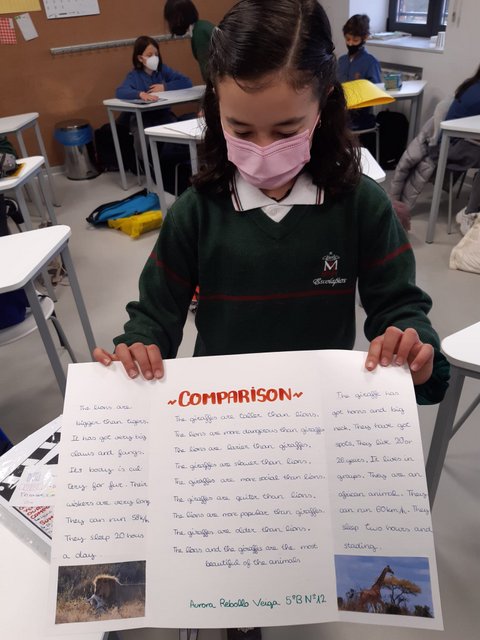 Escolapios
~COMPARISON~
The lions are
bigger than tigers.
It has got very big
claws and fangs.
It's body is cul
tery for fur. Their
wiskers are very long
They can run 58k/h
They sleep 20 hours
a day.
The giraffes are taller than lions.
The lions are more dangerous than giraffe
The lions are lazier than giraffes.
The giraffes are slower than lions.
The giraffes are more social than lions
The giraffes are quiter than lions.
The lions are more popular than giraffes.
The giraffes are older than lions.
The lions and the giraffes are the most
beautiful of the animals
Aurora Rebollo Veiga 5ºB Nº12
The giraffe has
got horns and big
neck. They have got
spots. They live 20 or
26 years. It lives in
groups. They are an
african animal. They
can run 60km/h. They
sleep two hours and
stading.